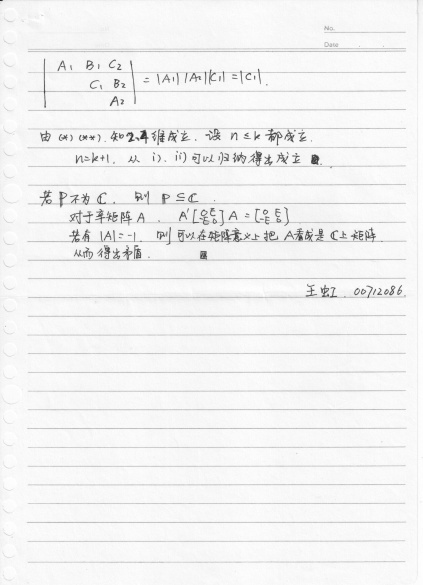 No.
Date
| A₁ B₁ C₂ |
| C₁ B₂ | = |A₁||A₂||C₁| = |C₁|.
| A₂ |
由 (*) (**). 知 2,4维成立. 设 n ≤ k 都成立.
n=k+1, 从 i). ii) 可以归纳得出成立
若 P 不为 ℂ, 则 P ⊆ ℂ.
对于辛矩阵 A. A'[0 E -E 0] A = [0 E -E 0]
若有 |A| = -1. 则可以在矩阵意义上把 A看成是 ℂ上矩阵.
从而得出矛盾.
王虹. 00712086.